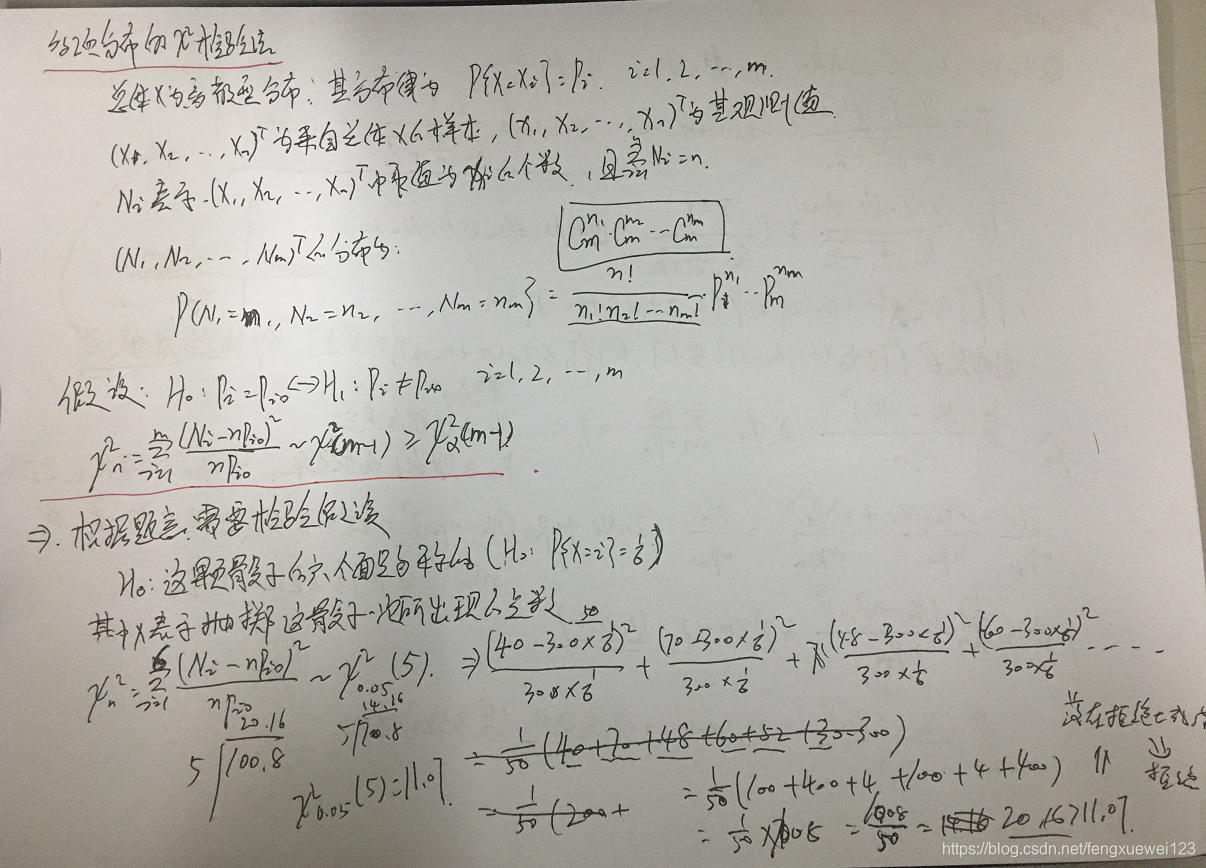 多项分布的χ²检验法
总体X为离散型分布：其分布律为 P{X=Xi}=Pi. i=1, 2, ⋯, m.
(X1, X2, ⋯, Xn)ᵀ为来自总体X的样本, (x1, x2, ⋯, xn)ᵀ为其观测值
Ni表示 (X1, X2, ⋯, Xn)ᵀ中取值为xi的个数, 且∑(i=1→m) Ni=n.
C_m^{n1}·C_m^{n2}⋯C_m^{nm}
(N1, N2, ⋯, Nm)ᵀ的分布为:
P{N1=n1, N2=n2, ⋯, Nm=nm} = n!/(n1!n2!⋯nm!)·P1^{n1}⋯Pm^{nm}
假设: H0: Pi=Pi0 ↔ H1: Pi≠Pi0 i=1, 2, ⋯, m
χn²=∑(i=1→m) (Ni-nPi0)²/(nPi0) ~ χ²(m-1) ≥ χα²(m-1)
⇒. 根据题意, 需要检验假设
H0: 这颗骰子的六个面是匀称的 (H0: P{X=i}=1/6)
其中X表示抛掷这骰子一次所出现的点数
50
χn²=∑(i=1→6) (Ni-nPi0)²/(nPi0) ~ χ²0.05(5). ⇒ (40-300×1/6)²/(300×1/6) + (70-300×1/6)²/(300×1/6) + (48-300×1/6)²/(300×1/6) + (60-300×1/6)²/(300×1/6) ⋯⋯
20.16
5 100.8
14.16
5 70.8
χ²0.05(5)=11.07
= 1/50 (40+70+48+60+52+30-300)
= 1/50 (200+
= 1/50 (100+400+4+100+4+400)
= 1/50 × 1008 = 1008/50 = 20.16>11.07.
⇑
落在拒绝域内
⇓
拒绝
https://blog.csdn.net/fengxuewei123